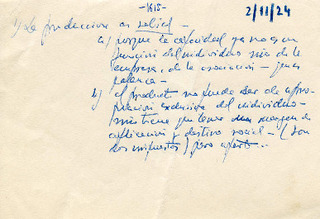 -1615-
2/11/24
1) La produccion es social -
a) porque la capacidad ya no es un
funcion del individuo sino de la
empresa, de la asociacion -
palanca -
b) el producto no puede ser de apro-
piacion exclusiva del individuo -
sino tiene que tener un margen de
y destino social - (son
los impuestos) pero aparte -